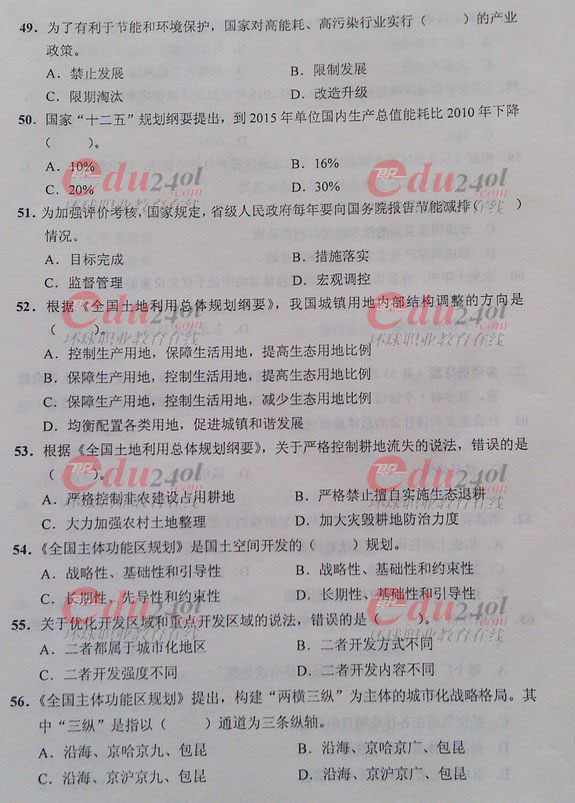 49．为了有利于节能和环境保护，国家对高能耗、高污染行业实行（　　）的产业
政策。
A．禁止发展　　B．限制发展
C．限期淘汰　　D．改造升级
50．国家“十二五”规划纲要提出，到2015年单位国内生产总值能耗比2010年下降
（　　）。
A．10%　　B．16%
C．20%　　D．30%
51．为加强评价考核，国家规定，省级人民政府每年要向国务院报告节能减排（　　）
情况。
A．目标完成　　B．措施落实
C．监督管理　　D．宏观调控
52．根据《全国土地利用总体规划纲要》，我国城镇用地内部结构调整的方向是
（　　）。
A．控制生产用地，保障生活用地，提高生态用地比例
B．保障生产用地，控制生活用地，提高生态用地比例
C．保障生产用地，控制生活用地，减少生态用地比例
D．均衡配置各类用地，促进城镇和谐发展
53．根据《全国土地利用总体规划纲要》，关于严格控制耕地流失的说法，错误的是
（　　）。
A．严格控制非农建设占用耕地　　B．严格禁止擅自实施生态退耕
C．大力加强农村土地整理　　D．加大灾毁耕地防治力度
54．《全国主体功能区规划》是国土空间开发的（　　）规划。
A．战略性、基础性和引导性　　B．战略性、基础性和约束性
C．长期性、先导性和约束性　　D．长期性、基础性和引导性
55．关于优化开发区域和重点开发区域的说法，错误的是（　　）。
A．二者都属于城市化地区　　B．二者开发方式不同
C．二者开发强度不同　　D．二者开发内容不同
56．《全国主体功能区规划》提出，构建“两横三纵”为主体的城市化战略格局。其
中“三纵”是指以（　　）通道为三条纵轴。
A．沿海、京哈京九、包昆　　B．沿海、京哈京广、包昆
C．沿海、京沪京九、包昆　　D．沿海、京沪京广、包昆
Edu24ol
.com
环球职业教育在线